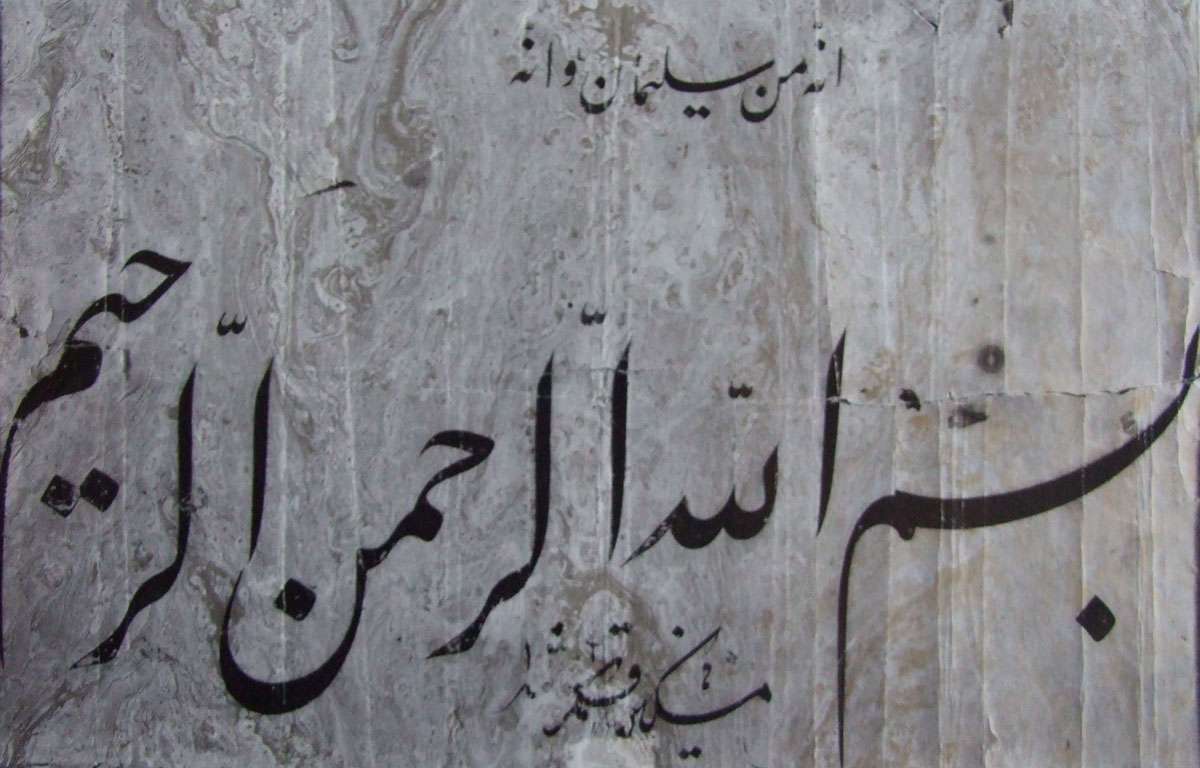 انه من سلیمان وانه
بسم الله الرحمن الرحیم